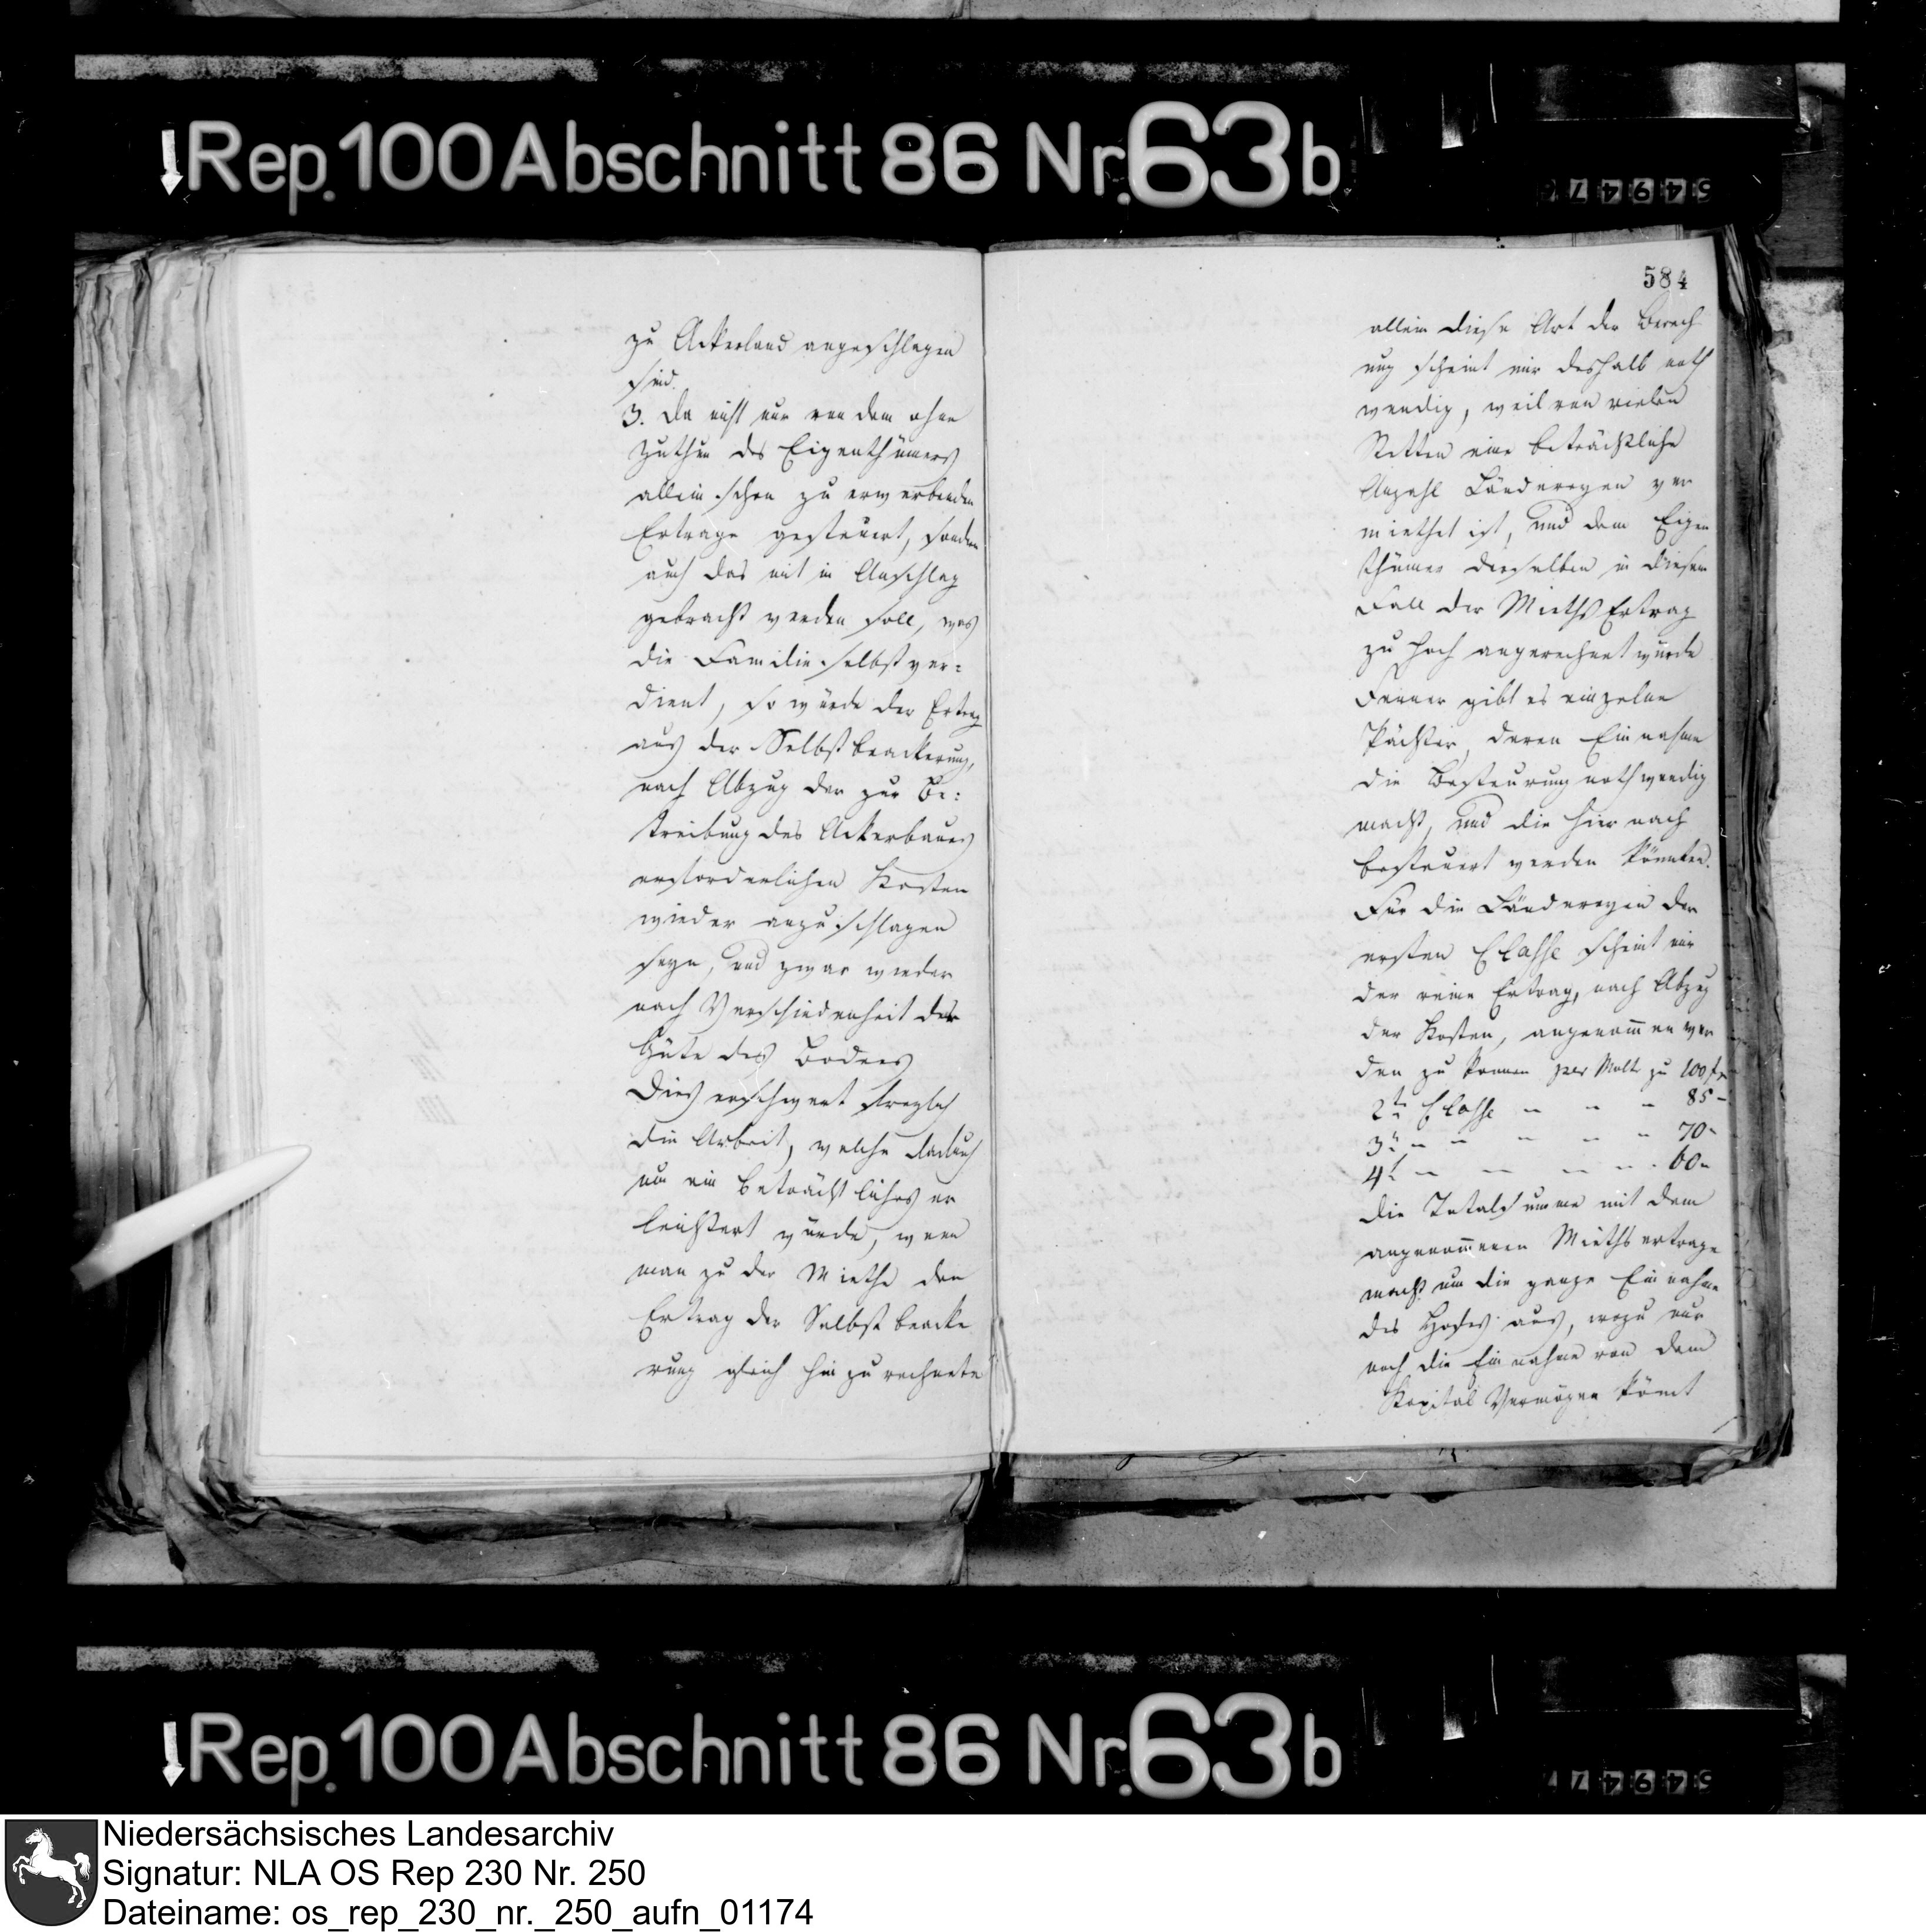 Rep. 100 Abschnitt 86 Nr. 63b
zu Ackerland angeschlagen
sind.
3. Da nicht nur von dem ohne
Zuthun des Eigenthümers
allein schon zu erwerbenden
Ertrage gesteuert, sondern
auch das mit in Anschlag
gebracht werden soll, was
die Familie selbst ver=
dient, so würde der Ertrag
aus der Selbstbeackerung,
nach Abzug der zur Be:
treibung des Ackerbaues
erforderlichen Kosten
wieder anzuschlagen
seyn, und zwar wieder
nach Verschiedenheit der
Güte des Bodens
Dies erschwert freylich
die Arbeit, welche dadurch
um ein beträchtliches er
leichtert würde, wenn
man zu der Miethe den
Ertrag der Selbst beacke
rung gleich hinzu rechnete
584
allein diese Art der Berech
nung scheint mir deshalb noth
wendig, weil von vielen
Stetten eine beträchtliche
Anzahl Ländereyen ver
miethet ist, und dem Eigen
thümer derselben in diesem
Fall der Mieths Ertrag
zu hoch angerechnet würde
Ferner gibt es einzelne
Pächter, deren Einnahme
die Besteurung nothwendig
macht, und die hier nach
besteuert werden könnten.
Für die Ländereyen der
ersten Classe scheint mir
der reine Ertrag, nach Abzug
der Kosten, angenommen wer
den zu können per Malt zu 100 fr
2te Classe " " " 85 -
3te " " " " " 70 -
4te " " " " 60 "
die Totalsumme mit dem
angenommenen Miethsertrage
macht nun die ganze Einnahme
des Hofes aus, wozu nur
noch die Einnahme von dem
Kapital Vermögen kömt
Rep. 100 Abschnitt 86 Nr. 63b
Niedersächsisches Landesarchiv
Signatur: NLA OS Rep 230 Nr. 250
Dateiname: os_rep_230_nr._250_aufn_01174